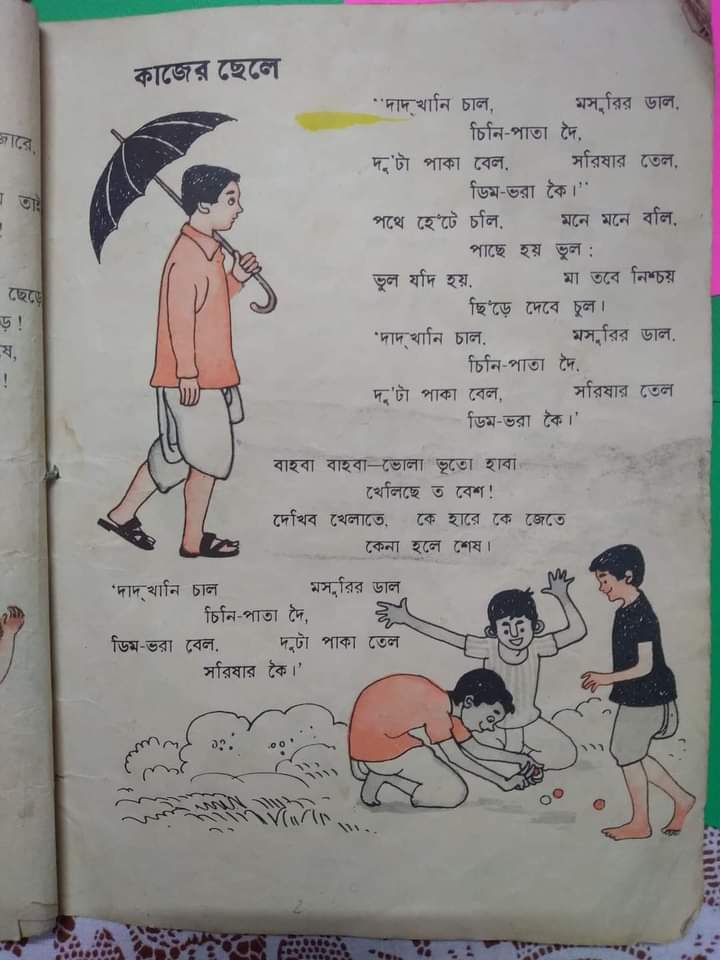 কাজের ছেলে
"দাদ্‌খানি চাল, মসুরির ডাল,
চিনি-পাতা দৈ,
দু'টা পাকা বেল, সরিষার তেল,
ডিম-ভরা কৈ।"
পথে হেঁটে চলি, মনে মনে বলি,
পাছে হয় ভুল :
ভুল যদি হয়, মা তবে নিশ্চয়
ছিঁড়ে দেবে চুল।
'দাদ্‌খানি চাল, মসুরির ডাল,
চিনি-পাতা দৈ,
দু'টা পাকা বেল, সরিষার তেল
ডিম-ভরা কৈ।'
বাহবা বাহবা—ভোলা ভূতো হাবা
খেলিছে ত বেশ!
দেখিব খেলাতে, কে হারে কে জেতে
কেনা হলে শেষ।
'দাদ্‌খানি চাল মসুরির ডাল
চিনি-পাতা দৈ,
ডিম-ভরা বেল, দুটা পাকা তেল
সরিষার কৈ।'
2